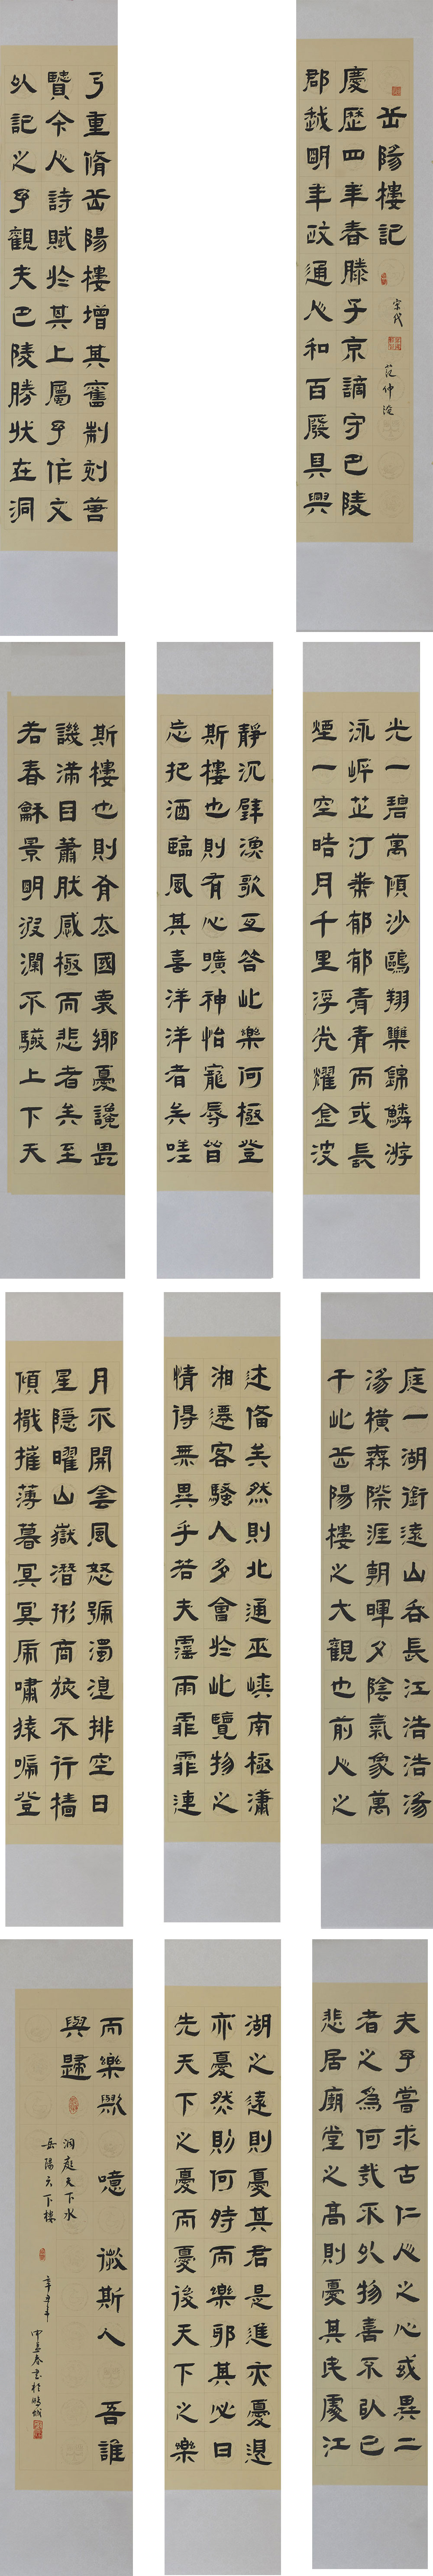 岳陽樓記 宋代 范仲淹
慶歷四年春滕子京謫守巴陵
郡越明年政通人和百廢具興
乃重脩岳陽樓增其舊制刻唐
賢今人詩賦於其上屬予作文
以記之予觀夫巴陵勝狀在洞
庭一湖銜遠山吞長江浩浩湯
湯橫無際涯朝暉夕陰氣象萬
千此岳陽樓之大觀也前人之
述備矣然則北通巫峽南極瀟
湘遷客騷人多會於此覽物之
情得無異乎若夫霪雨霏霏連
月不開陰風怒號濁浪排空日
星隱曜山嶽潛形商旅不行檣
傾檝摧薄暮冥冥虎嘯猿啼登
斯樓也則有去國懷鄉憂讒畏
譏滿目蕭然感極而悲者矣至
若春龢景明波瀾不驚上下天
光一碧萬頃沙鷗翔集錦鱗游
泳岸芷汀蘭郁郁青青而或長
煙一空皓月千里浮光耀金波
靜沉璧漁歌互答此樂何極登
斯樓也則有心曠神怡寵辱皆
忘把酒臨風其喜洋洋者矣嗟
夫予嘗求古仁人之心或異二
者之為何哉不以物喜不以己
悲居廟堂之高則憂其民處江
湖之遠則憂其君是進亦憂退
亦憂然則何時而樂邪其必曰
先天下之憂而憂後天下之樂
而樂歟噫微斯人吾誰
與歸
洞庭天下水
岳陽天下樓
辛丑年仲春書於鵬城